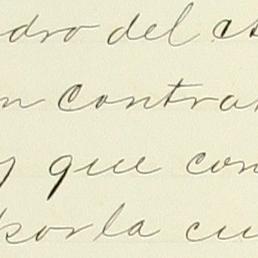 dro del
n contra
y que con
por la cu